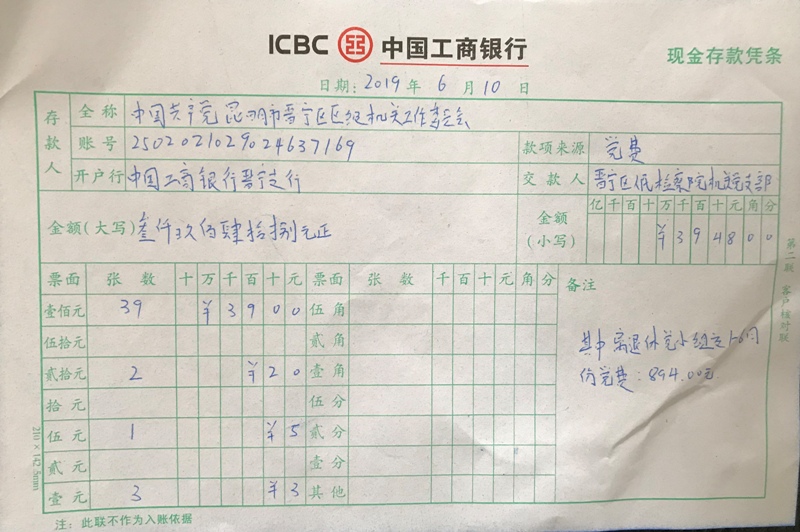 ICBC 中国工商银行
现金存款凭条
日期：2019 年 6 月 10 日
存款人
全称 中国共产党昆明市晋宁区区级机关工作委员会
账号 2502021029024637169
款项来源 党费
开户行 中国工商银行晋宁支行
交款人 晋宁区低检察院机关党支部
金额(大写) 叁仟玖佰肆拾捌元正
金额(小写) 亿千百十万千百十元角分
¥394800
票面 张数 十万千百十元 票面 张数 千百十元角分 备注
壹佰元 39 ¥3900 伍角
伍拾元 贰角
贰拾元 2 ¥20 壹角
拾元 伍分
伍元 1 ¥5 贰分
贰元 壹分
壹元 3 ¥3 其他
其中离退休党小组交1-6月
份党费：894.00元
第二联 客户核对联
210×142.5mm
注：此联不作为入账依据